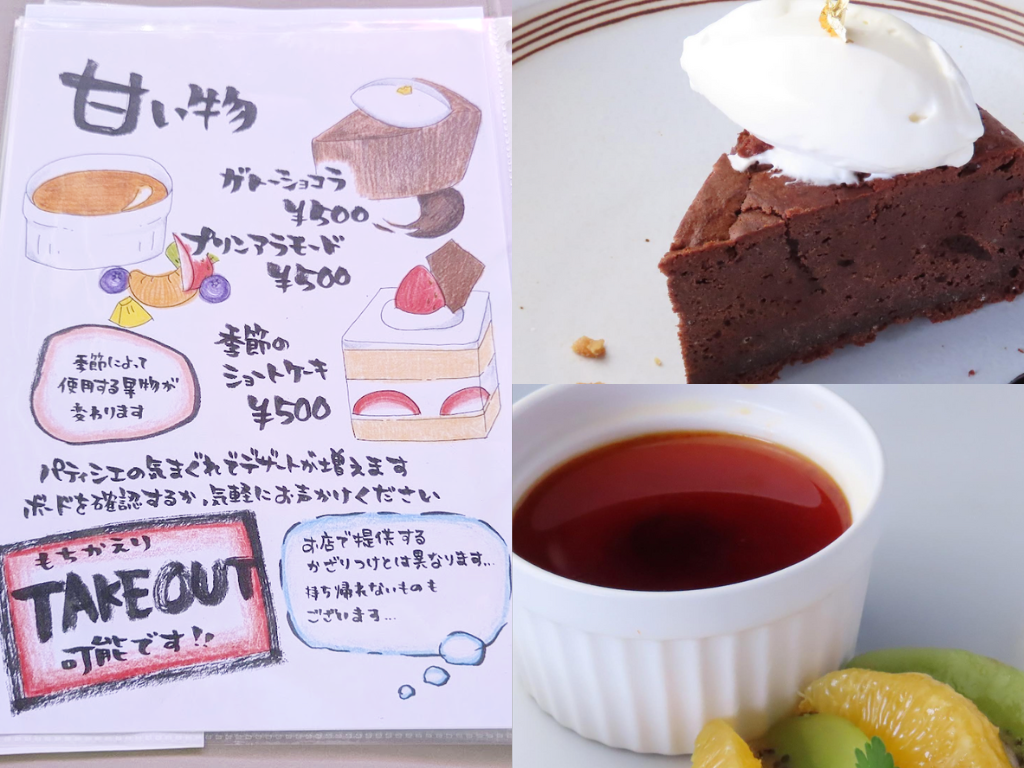 甘い物
ガトーショコラ
¥500
プリンアラモード
¥500
季節の
ショートケーキ
¥500
季節によって
使用する果物が
変わります
パティシエの気まぐれでデザートが増えます
ボードを確認するか、気軽にお声がけください
もちかえり
TAKEOUT
可能です!!
お店で提供する
かざりつけとは異なります...
持ち帰れないものも
ございます...